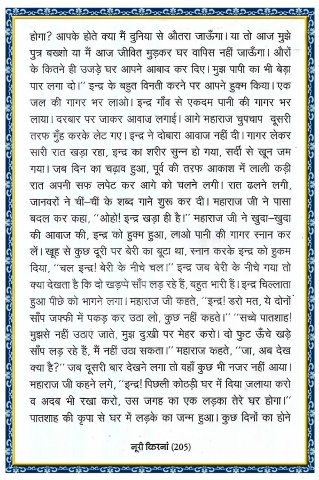 होगा? आपके होते क्या मैं दुनिया से औतरा जाऊँगा। या तो आज मुझे
पुत्र बख्शो या मैं आज जीवित मुड़कर घर वापिस नहीं जाऊँगा। औरों
के कितने ही उजड़े घर आपने आबाद कर दिए। मुझ पापी का भी बेड़ा
पार लगा दो।" इन्द्र के बहुत विनती करने पर आपने हुक्म किया। एक
जल की गागर भर लाओ। इन्द्र गाँव से एकदम पानी की गागर भर
लाया। दरबार पर जाकर आवाज लगाई। आगे महाराज चुपचाप दूसरी
तरफ मुँह करके लेट गए। इन्द्र ने दोबारा आवाज नहीं दी। गागर लेकर
सारी रात खड़ा रहा, इन्द्र का शरीर सुन्न हो गया, सर्दी से खून जम
गया। जब दिन का चढ़ाव हुआ, पूर्व की तरफ आकाश में लाली कड़ी
रात अपनी सफ लपेट कर आगे को चलने लगी। रात ढलने लगी,
जानवरों ने चीं-चीं के शब्द गाने शुरू कर दी। महाराज जी ने पासा
बदल कर कहा, "ओहो! इन्द्र खड़ा ही है।" महाराज जी ने खुदा-खुदा
की आवाज की, इन्द्र को हुक्म हुआ, लाओ पानी की गागर स्नान कर
लें। खूह से कुछ दूरी पर बेरी का बूटा था, स्नान करके इन्द्र को हुकम
दिया, "चल इन्द्र! बेरी के नीचे चल।" इन्द्र जब बेरी के नीचे गया तो
क्या देखता है कि दो खड़पे साँप लड़ रहे हैं, बहुत भारी हैं। इन्द्र चिल्लाता
हुआ पीछे को भागने लगा। महाराज जी कहते, "इन्द्र! डरो मत, ये दोनों
साँप जफ्फी में पकड़ कर उठा लो, कुछ नहीं कहते।" "सच्चे पातशाह!
मुझसे नहीं उठाए जाते, मुझ दुःखी पर मेहर करो। दो फुट ऊँचे खड़े
साँप लड़ रहे हैं, मैं नहीं उठा सकता।" महाराज कहते, "जा, अब देख
क्या है?" जब दूसरी बार देखने लगा तो वहाँ कुछ भी नजर नहीं आया।
महाराज जी कहने लगे, "इन्द्र! पिछली कोठड़ी घर में दिया जलाया करो
व अदब भी रखा करो, उस जगह का एक लड़का तेरे घर होगा।"
पातशाह की कृपा से घर में लड़के का जन्म हुआ। कुछ दिनों का होने
नूरी किरनां (205)